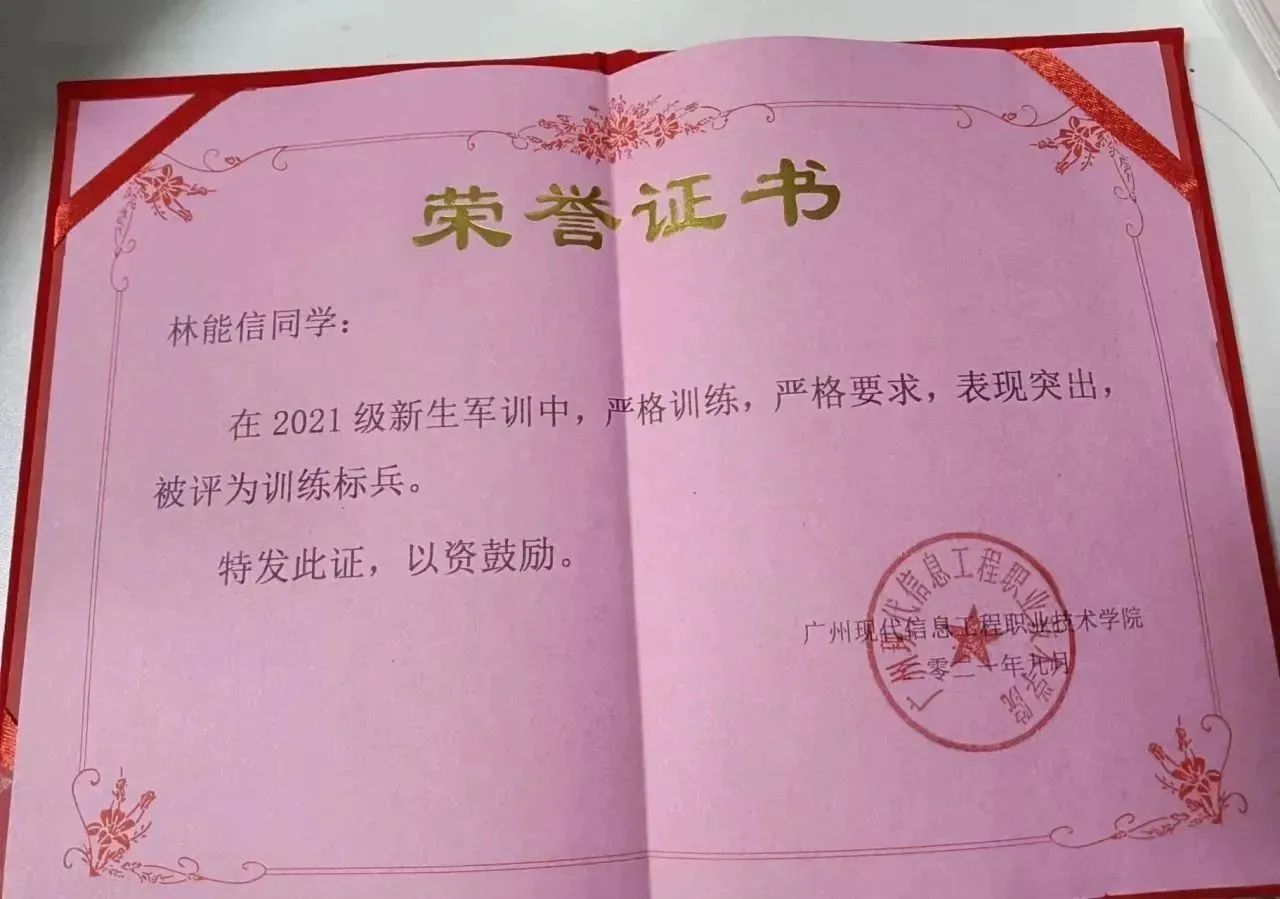 荣誉证书
林能信同学：
在2021级新生军训中，严格训练，严格要求，表现突出，
被评为训练标兵。
特发此证，以资鼓励。
广州现代信息工程职业技术学院
二零二一年九月
广州现代信息工程职业技术学院